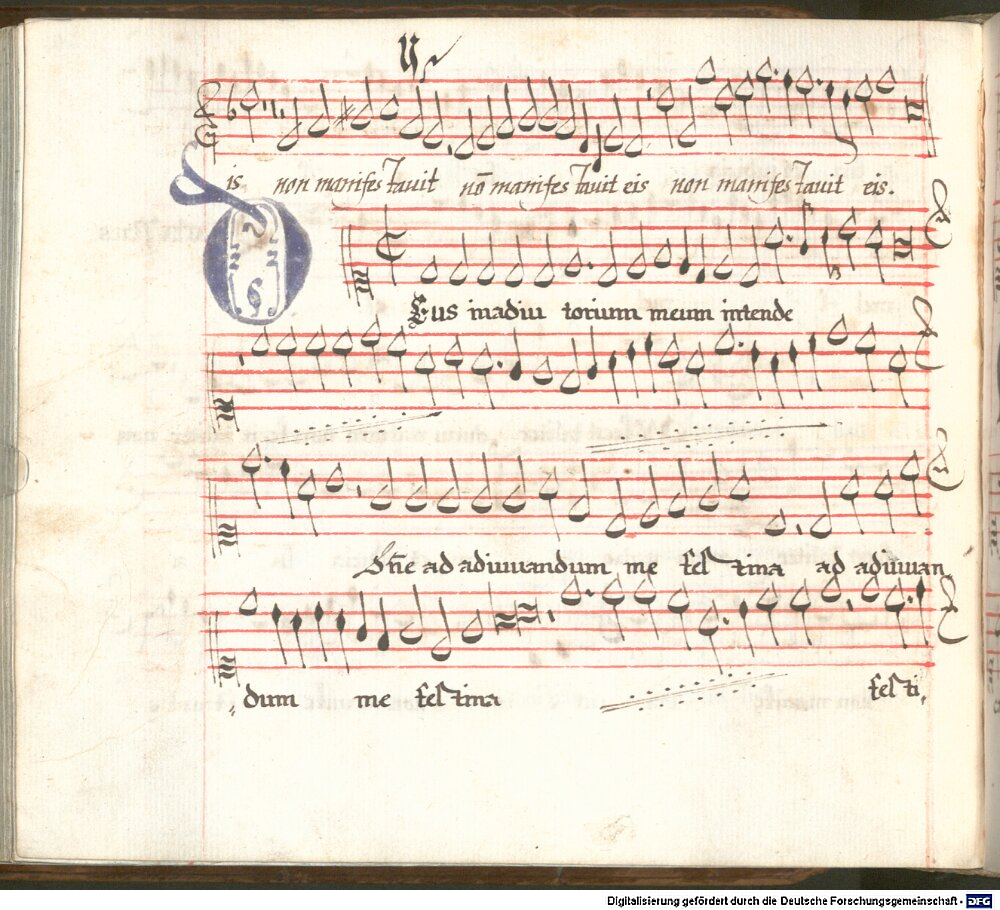 is non manifestauit nō manifestauit eis non manifestauit eis.
Eus in adiu torium meum intende
Dn̄e ad adiuuandum me festina ad adiuuan
dum me festina festi
Digitalisierung gefördert durch die Deutsche Forschungsgemeinschaft - DFG